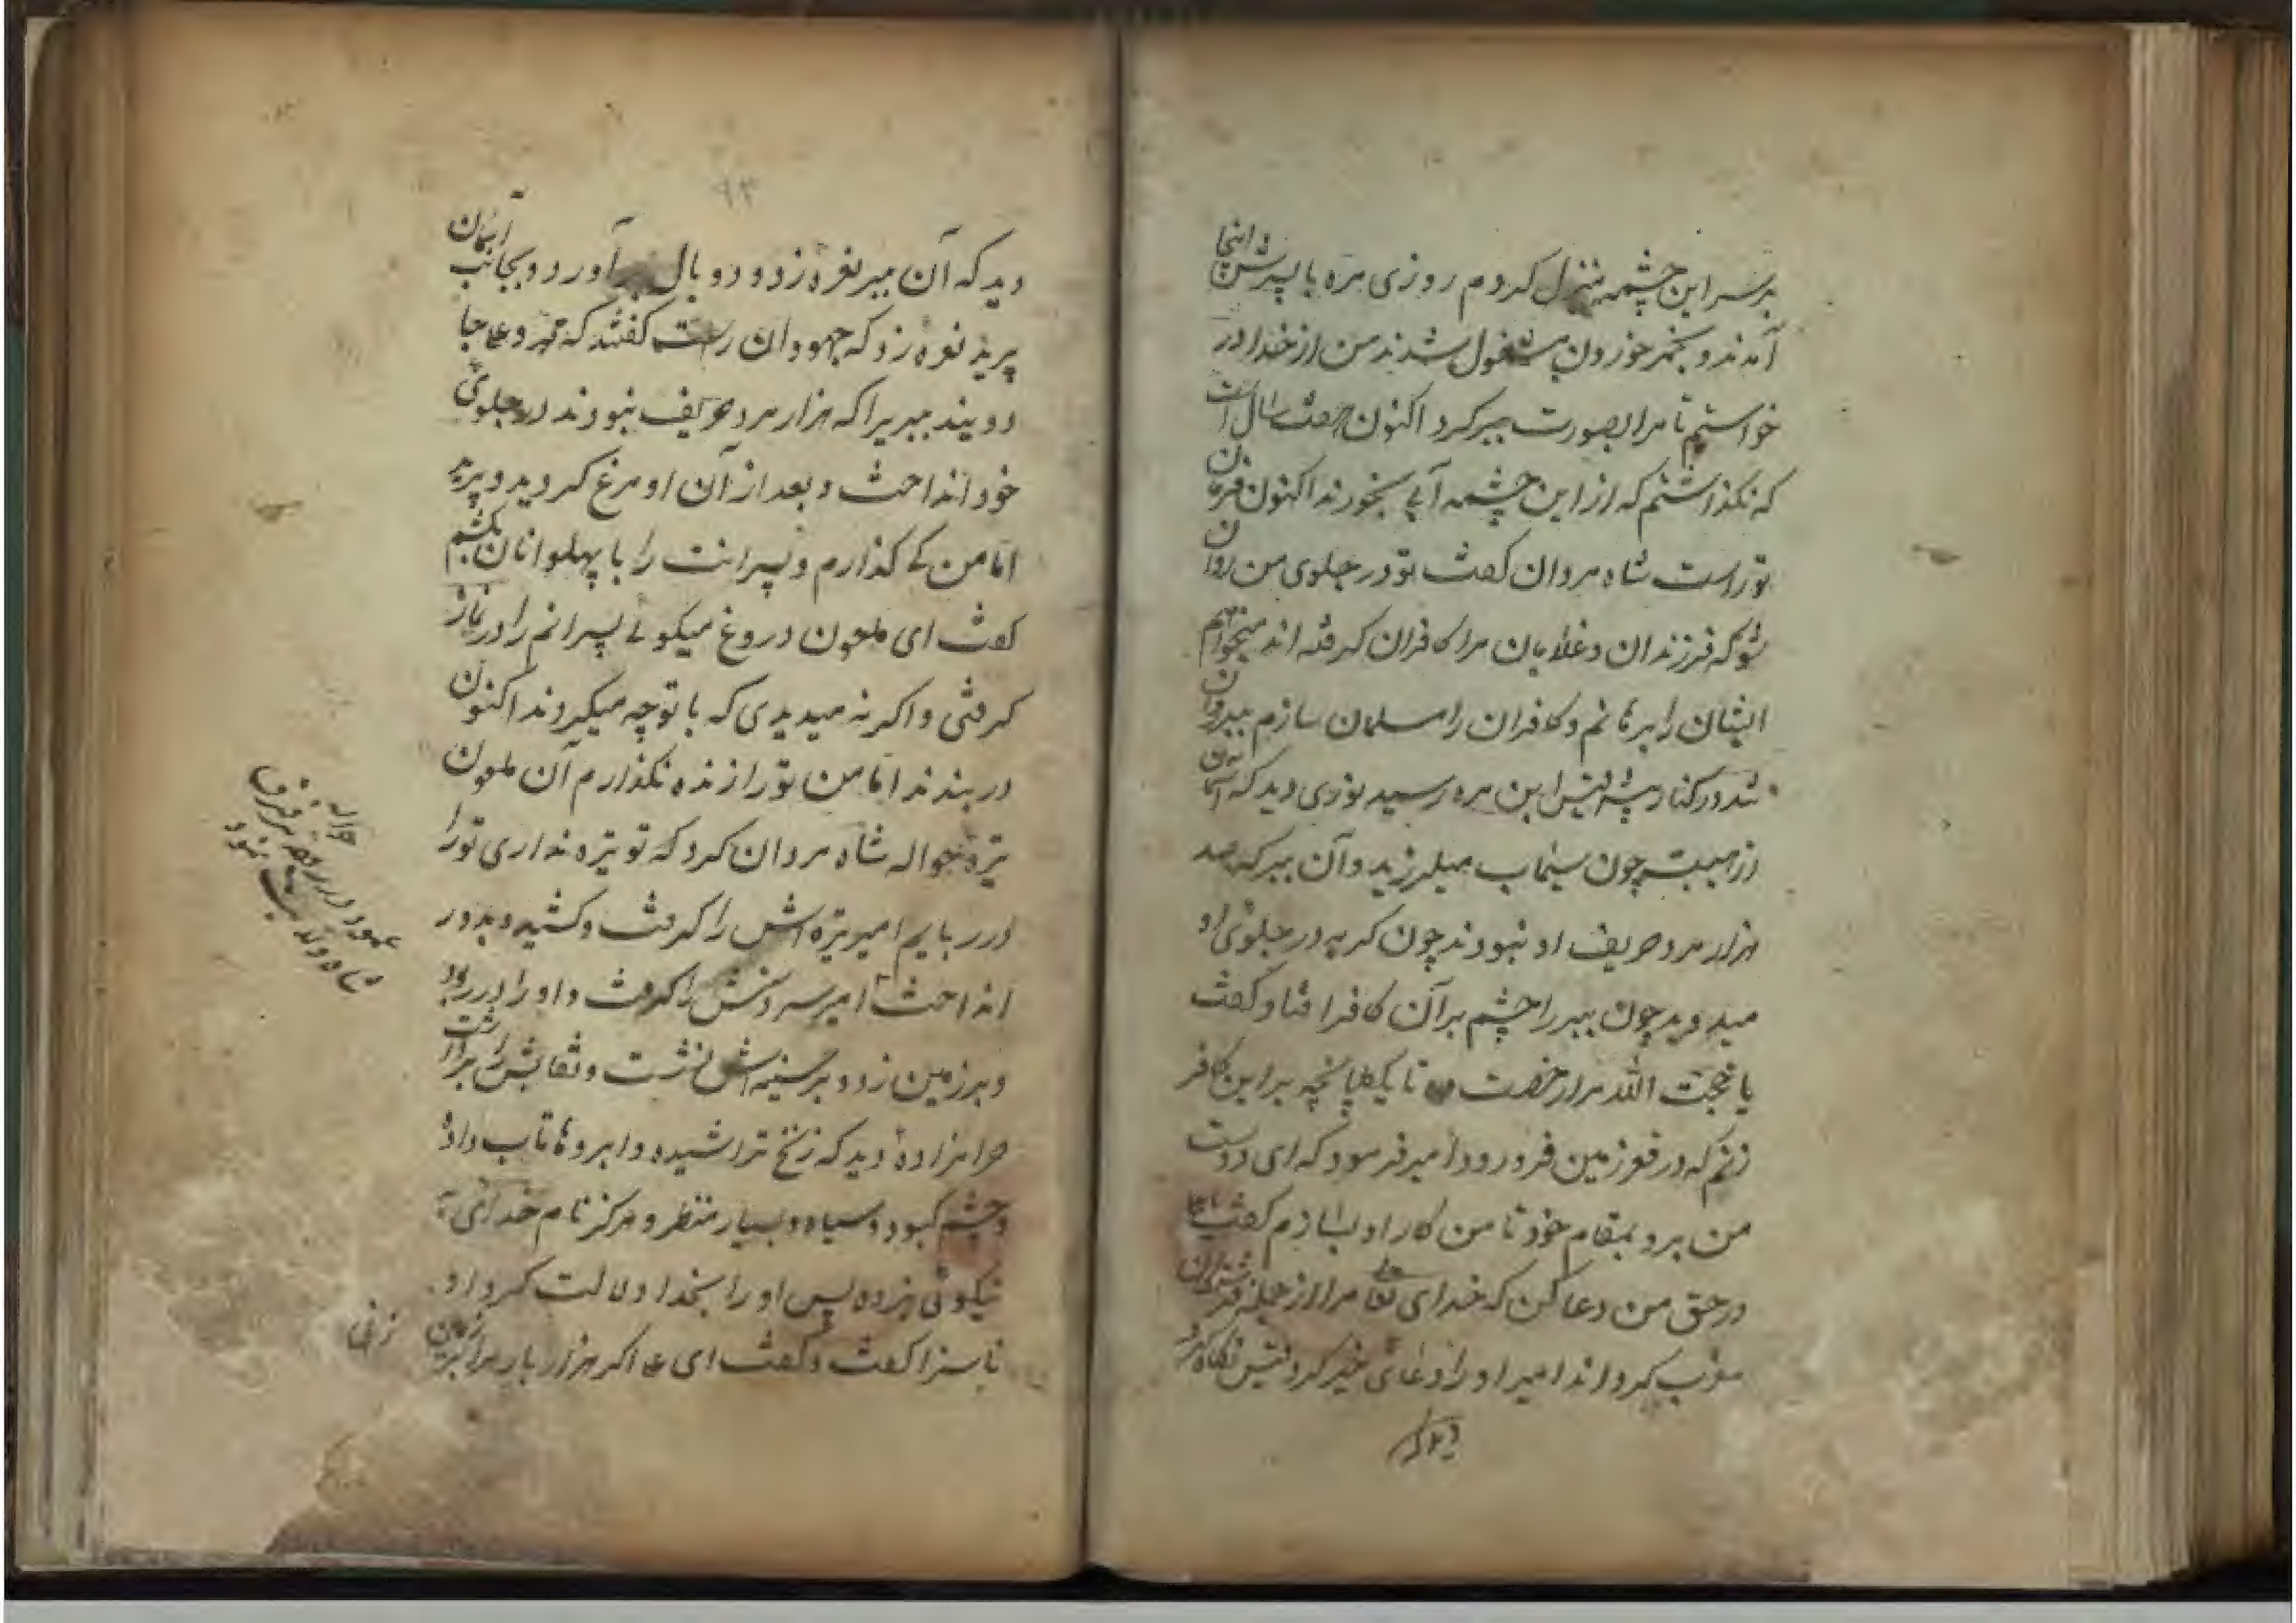 بر سر این چشمه منزل کردم روزی مره با پدرش اینجا
آمدند و بخمر خوردن مشغول شدند من از خدا در
خواستم تا مرا بصورت ببر کرد اکنون هفت سال است
که نگذاشتم که از این چشمه آبی بخورند اکنون فرمان
تو راست شاه مردان کفت تو در جلوی من روان
شو که فرزندان و غلامان مرا کافران کرفته اند میخواهم
ایشان را برهانم و کافران را مسلمان سازم ببر روان
شد در کنار بیشه لیث ابن مره رسید نوری دید که آسمان
از هیبتش چون سیماب میلرزید و آن ببر که صد
هزار مرد حریف او نبودند چون کربه در جلوی او
میدوید چون ببر را چشم بر آن کافر افتاد کفت
یا حجت الله مرا رخصت ده تا یک طپانچه بر این کافر
زنم که در قعر زمین فرو رود امیر فرمود که ای دوست
من برو بمقام خود تا من کار او بسازم کفت یا علی
در حق من دعا کن که خدای تعا مرا از جمله فرشتگان
مقرب کرداند امیر او را دعای خیر کرد لیث نکاه کرد
دید که
۹۳
دید که آن ببر نعره زد و دو بال بر آورد و بجانب آسمان
پرید نعره زد که جهودان راست کفتند که محمد و علی جا
دویند ببری را که هزار مرد حریف نبودند در جلوی
خود انداخت و بعد از آن او مرغ کردید و پرید
اما من کی گذارم و پسرانت را با پهلوانان بکشم
کفت ای ملعون دروغ میکویی پسرانم را در نماز
کرفتی و اکر نه میدیدی که با تو چه میکردند اکنون
در بندند اما من تو را زنده نکذارم آن ملعون
نیزه حواله شاه مردان کرد که تو نیزه نداری تو را
در ربایم امیر نیزه اش را کرفت و کشید و بدور
انداخت امیر سر دستش را کرفت و او را در ربود
و بر زمین زد و بر سینه اش نشست و نقابش را برداشت
حرامزاده دید که زنخ تراشیده و ابروها تاب داده
و چشم کبود و سیاه و بسیار منتظر و هرکز نام خدای
نیکوئی نبرده پس او را بخدا دلالت کرد او
ناسزا کفت و کفت ای علی اکر هزار بار مرا بر زمین
زنی